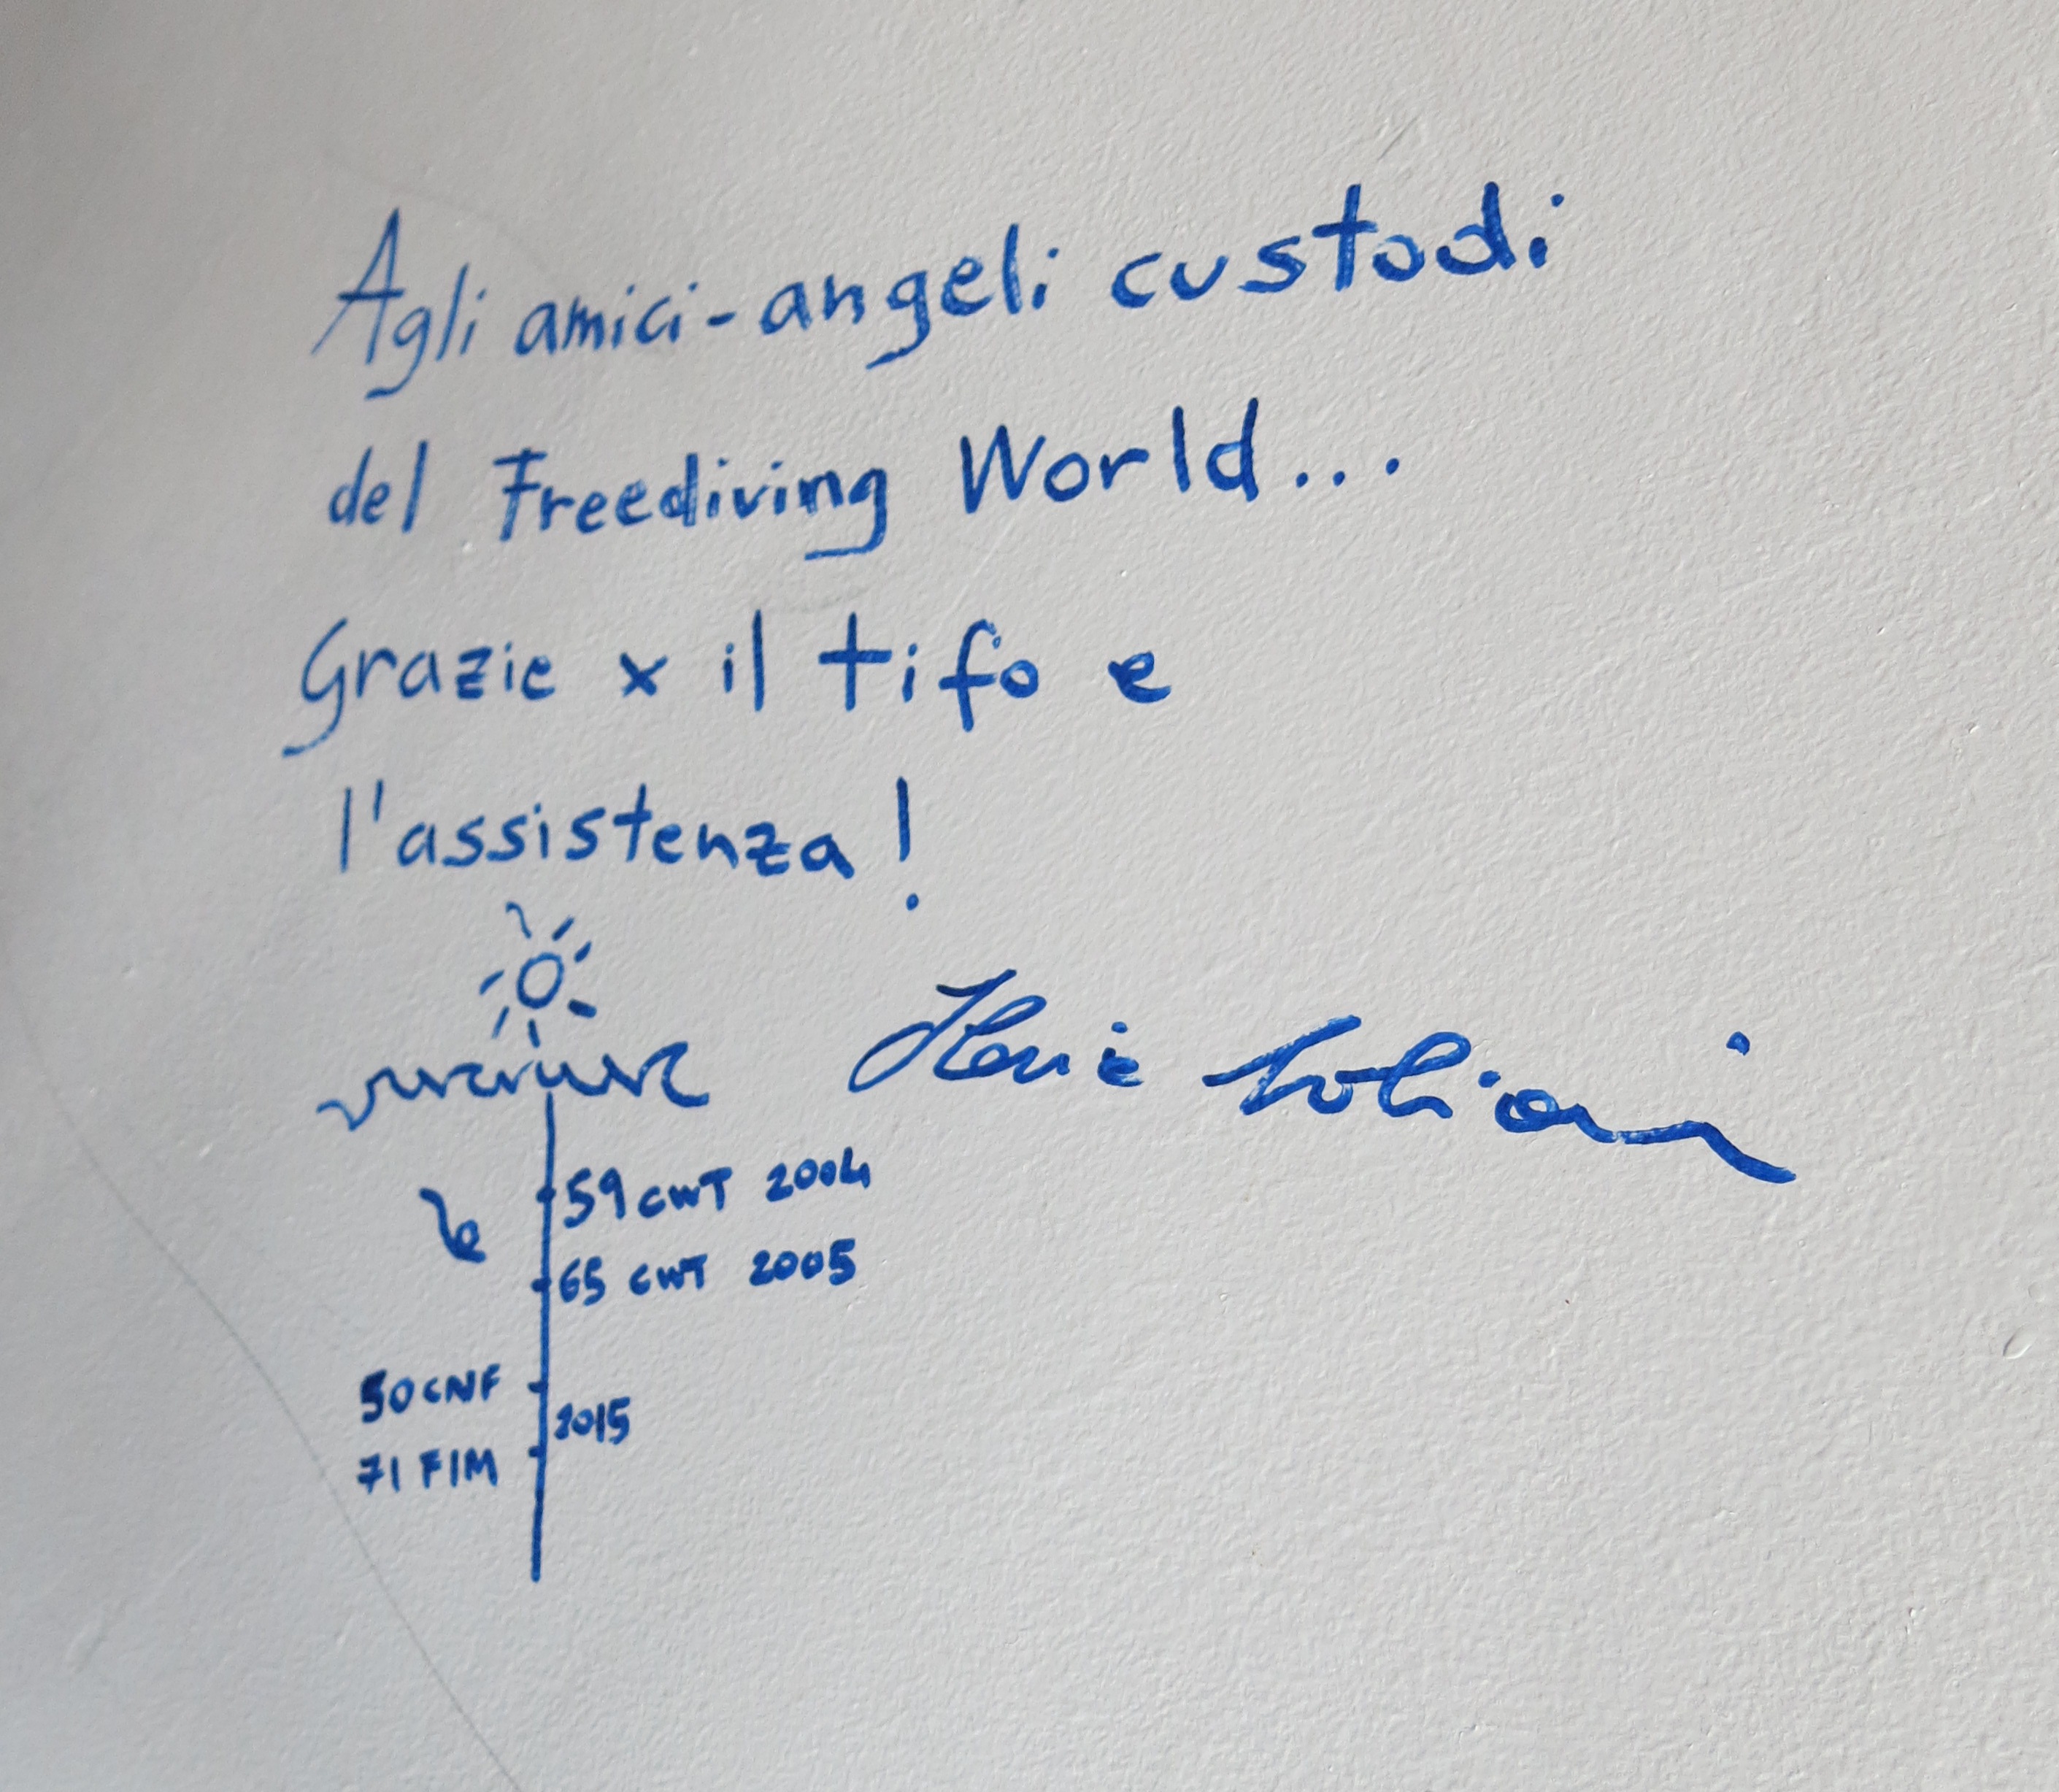 Agli amici-angeli custodi
del Freediving World...
Grazie x il tifo e
l'assistenza!
59 CWT 2004
65 CWT 2005
50 CNF
2015
71 FIM